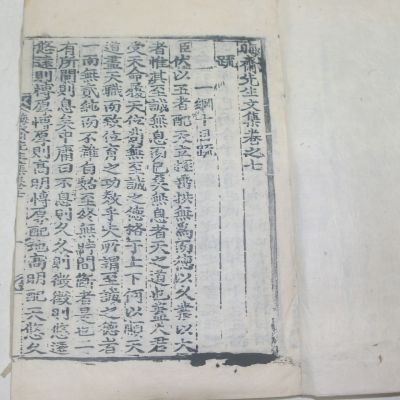 晦齋先生文集卷之七
疏
一綱十目疏
臣伏以王者配天立極垂拱無爲而德以久業以大
者惟其至誠無息而已矣無息者天之道也蓋人君
受天命履天位非有至誠之德格于上下何以順天
道盡天職而致位育之功敎乎夫所謂至誠之德者
一而無貳純而不雜自始至終無時間斷者是也二
有所間則息矣中庸曰不息則久久則徵徵則悠遠
悠遠則博厚博厚則高明博厚配地高明配天悠久